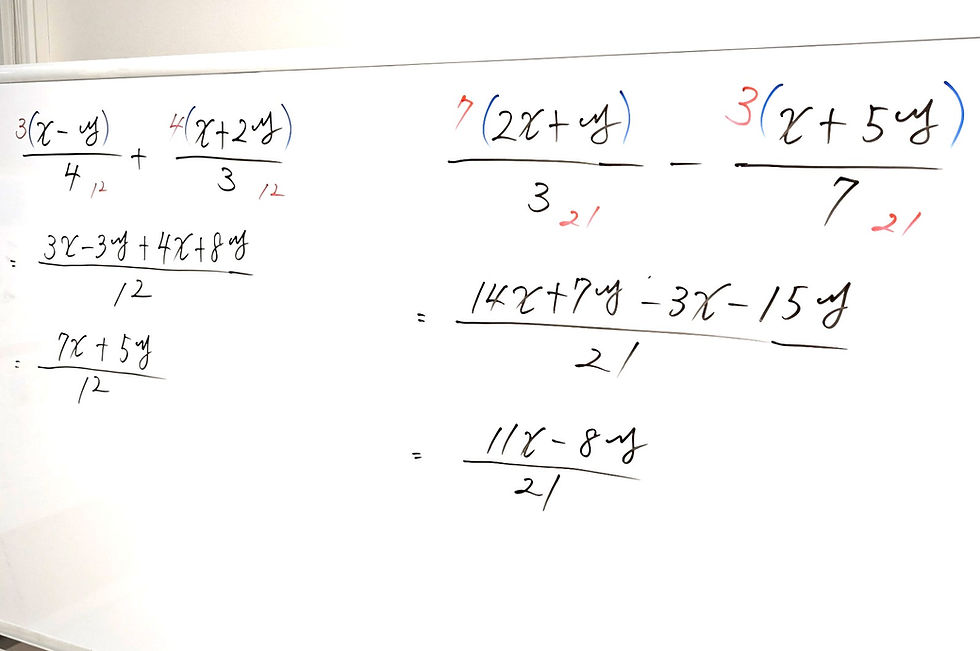 3(x-y)/4 12 + 4(x+2y)/3 12
= 3x-3y+4x+8y/12
= 7x+5y/12
7(2x+y)/3 21 - 3(x+5y)/7 21
= 14x+7y-3x-15y/21
= 11x-8y/21